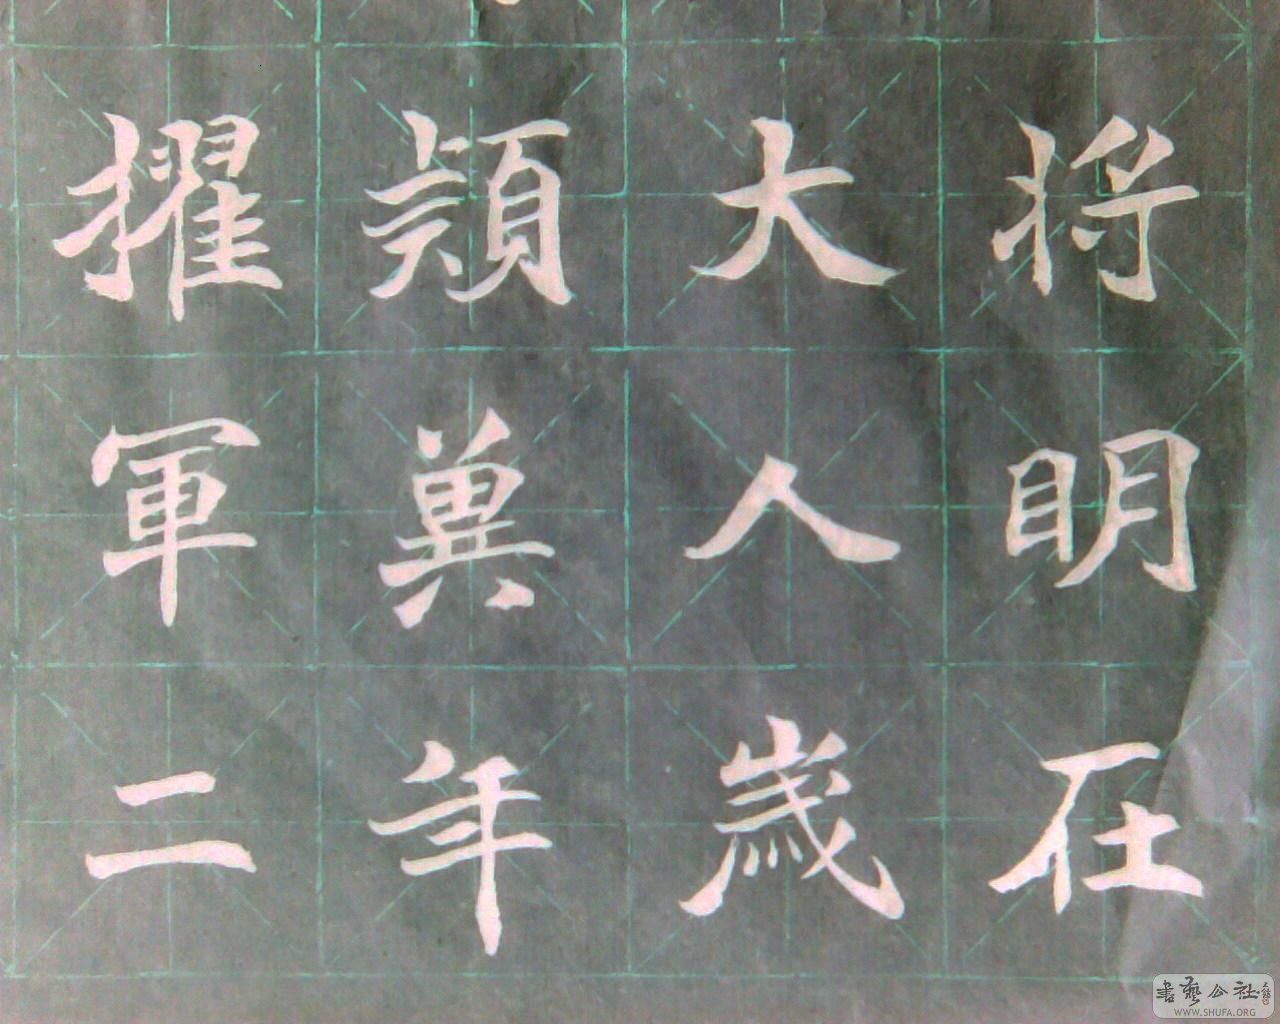 擢頴大将
軍兾人明
二年歲在
書藝公社
WWW.SHUFA.ORG